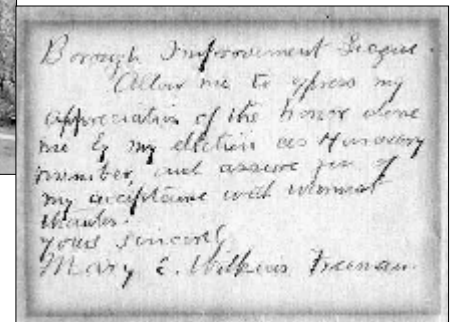 Borough Improvement League.
Allow me to express my
appreciation of the honor done
me by my election as Honorary
member, and assure you of
my acceptance with warmest
thanks.
Yours sincerely
Mary E. Wilkins Freeman.